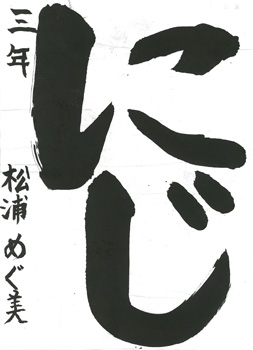 にじ
三年 松浦めぐ美